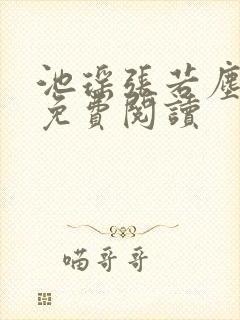 池瑤張若塵
免費閱讀
喵哥哥